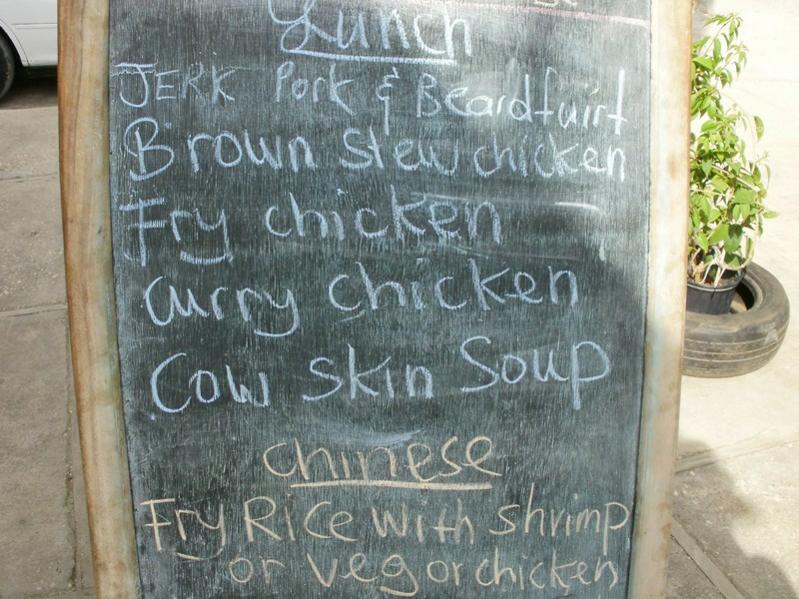 Lunch
JERK Pork & Beardfuirt
Brown Stew chicken
Fry chicken
Curry chicken
Cow Skin Soup
chinese
Fry Rice with shrimp
or veg or chicken